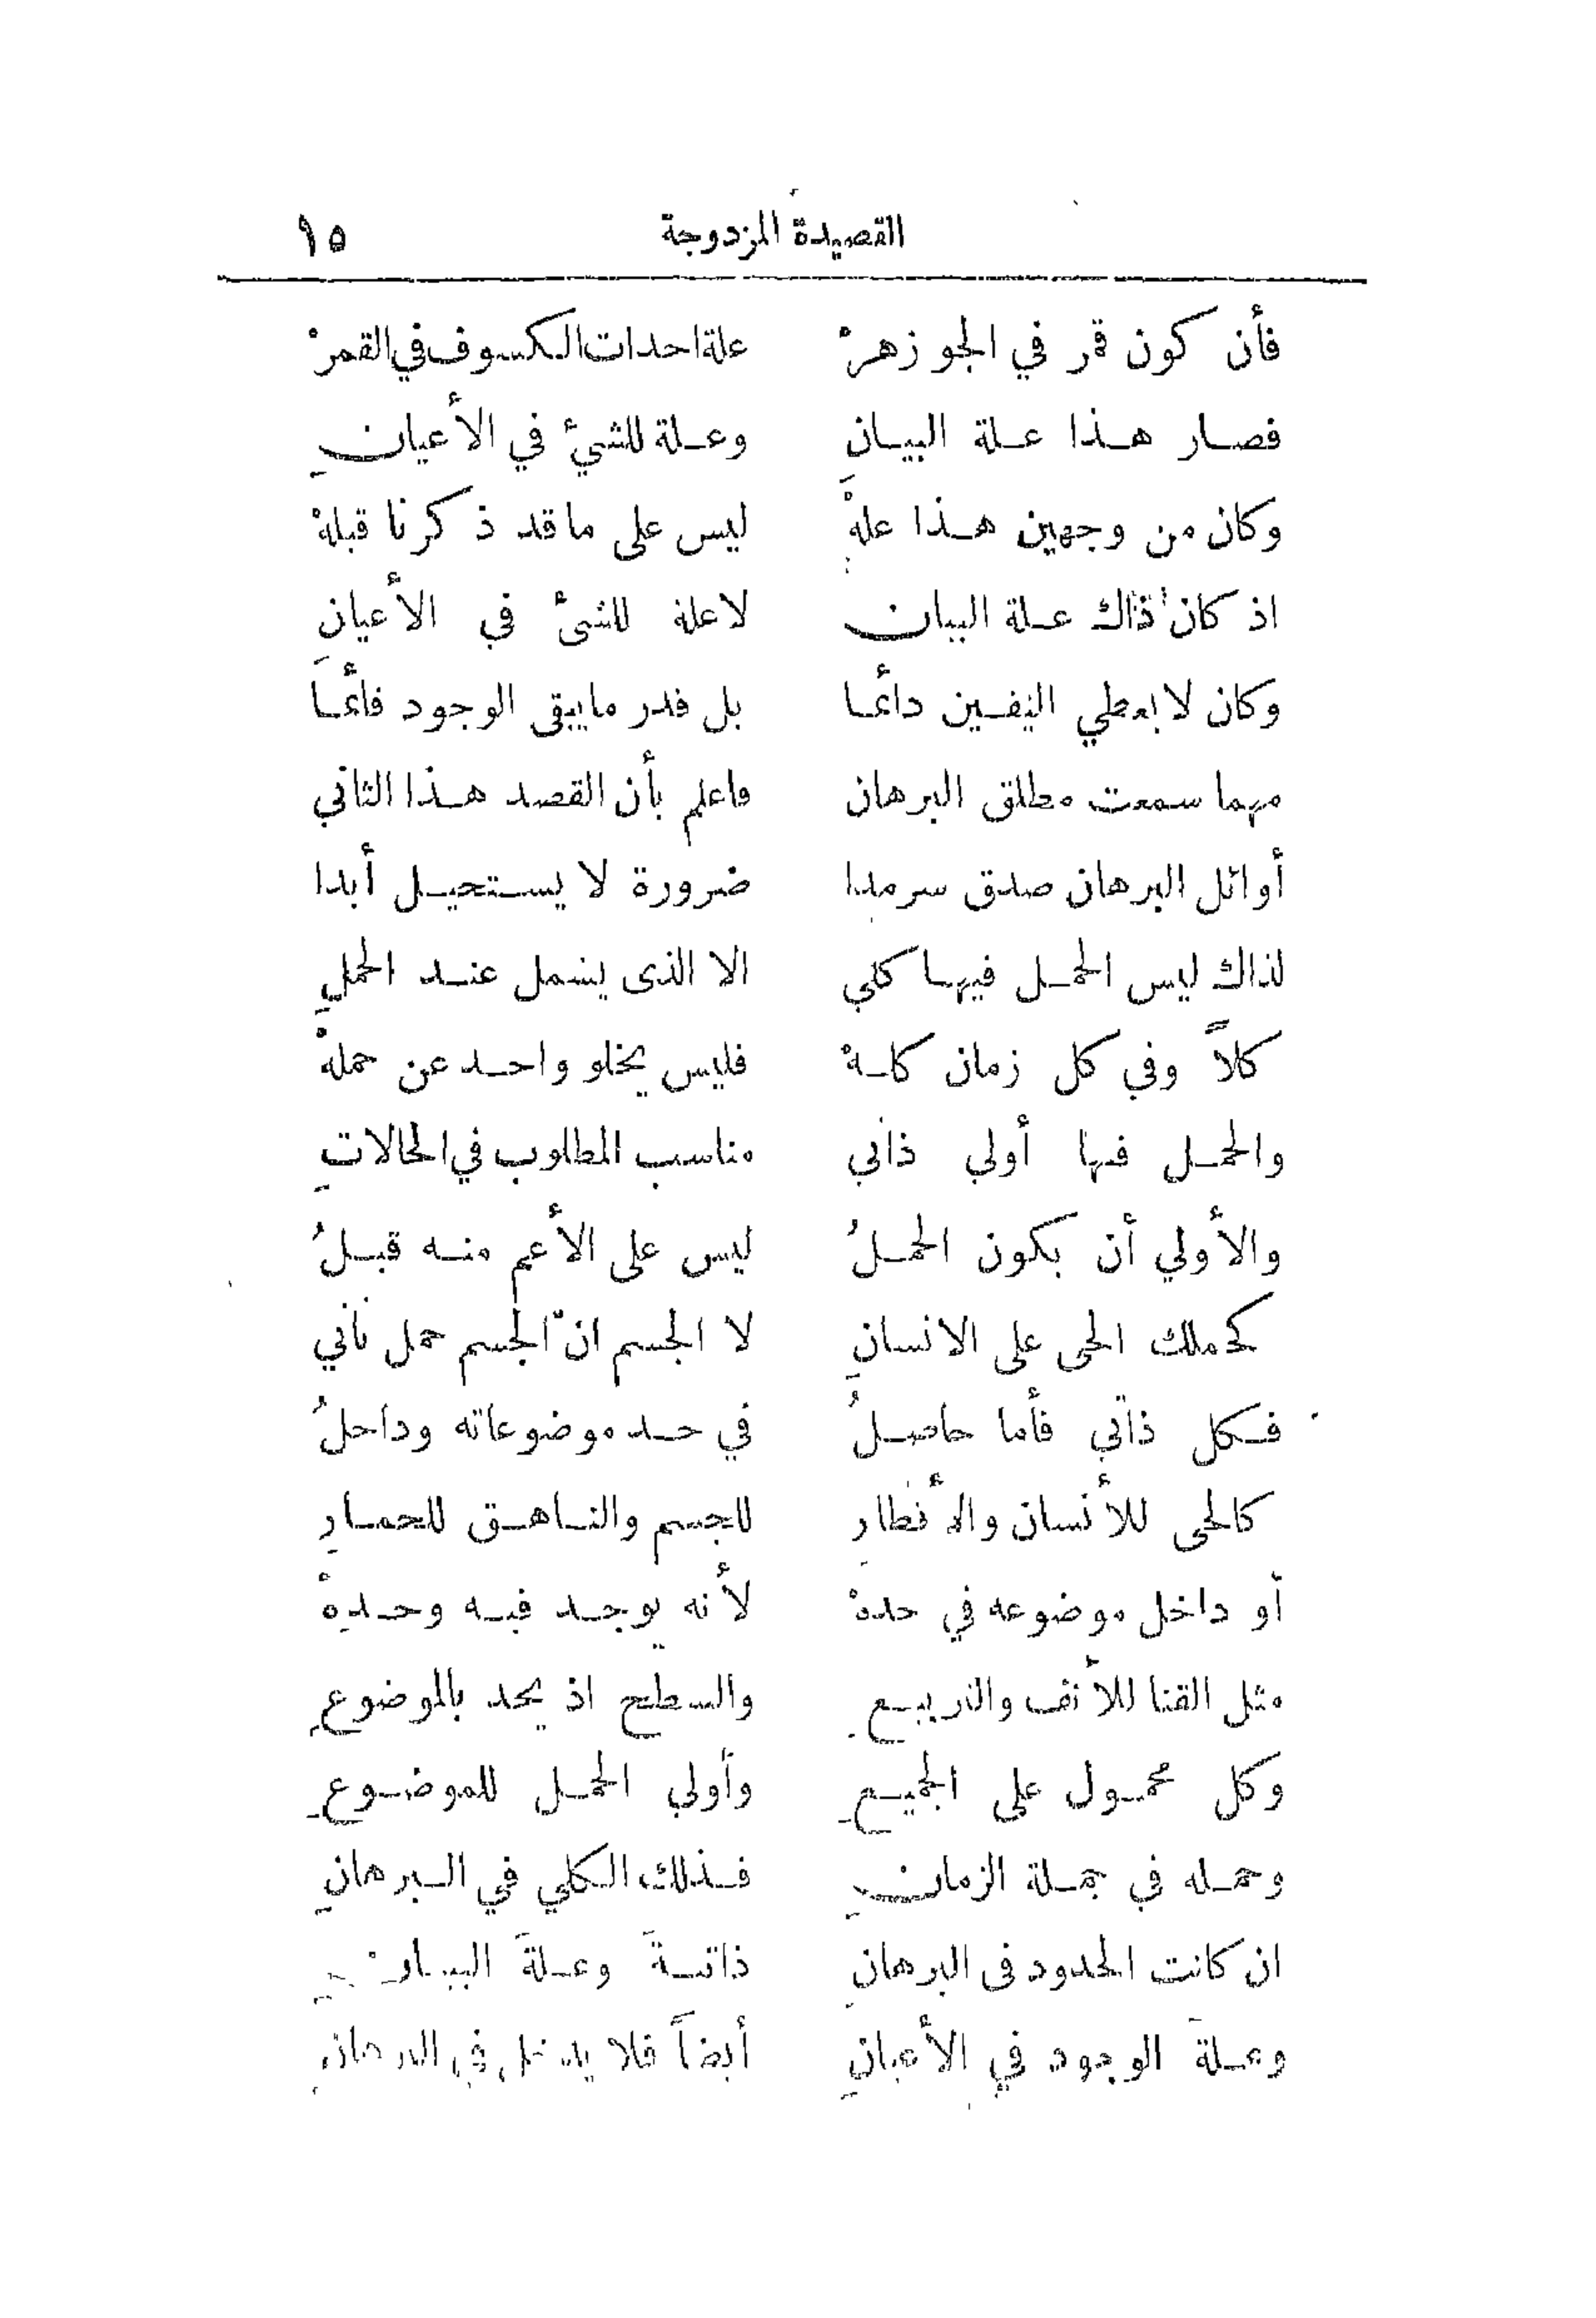 القصيدة المزدوجة ١٥
فأن كون قمر في الجو زهرْ علة احداث الكسوف في القمرْ
فصار هذا علة البيانِ وعلة للشيءْ في الأعيانِ
وكان من وجهين هذا علهْ ليس على ما قد ذكرنا قبلهْ
اذ كان ذاك علة البيان لا علة للشىء في الأعيانِ
وكان لا يعطي اليقين دائما بل قدر ما يبقى الوجود قائما
مهما سمعت مطلق البرهان فاعلم بأن القصد هذا الثاني
أوائل البرهان صدق سرمدا ضرورة لا يستحيل أبدا
لذاك ليس الحمل فيها كلي الا الذى يشمل عند الحملِ
كلاً وفي كل زمان كلهْ فليس يخلو واحد عن حملهْ
والحمل فيها أولي ذاتي مناسب المطلوب في الحالاتِ
والأولي أن يكون الحملُ ليس على الأعم منه قبلُ
كحملك الحى على الانسانِ لا الجسم انّ الجسم حمل ثاني
فكل ذاتي فأما حاصلُ في حد موضوعاته وداخلُ
كالحى للأنسان والأقطارِ للجسم والناهق للحمارِ
أو داخل موضوعه في حدهْ لأنه يوجد فيه وحدهْ
مثل القنا للأنف والتربيعِ والسطح اذ يحد بالموضوعِ
وكل محمول على الجميعِ وأولي الحمل للموضوعِ
وحمله في جملة الزمانِ فذلك الكلي في البرهانِ
ان كانت الحدود فى البرهانِ ذاتيةَ وعلةَ البيانِ
وعلةَ الوجود في الأعيانِ أيضاً فلا يدخل في البرهانِ